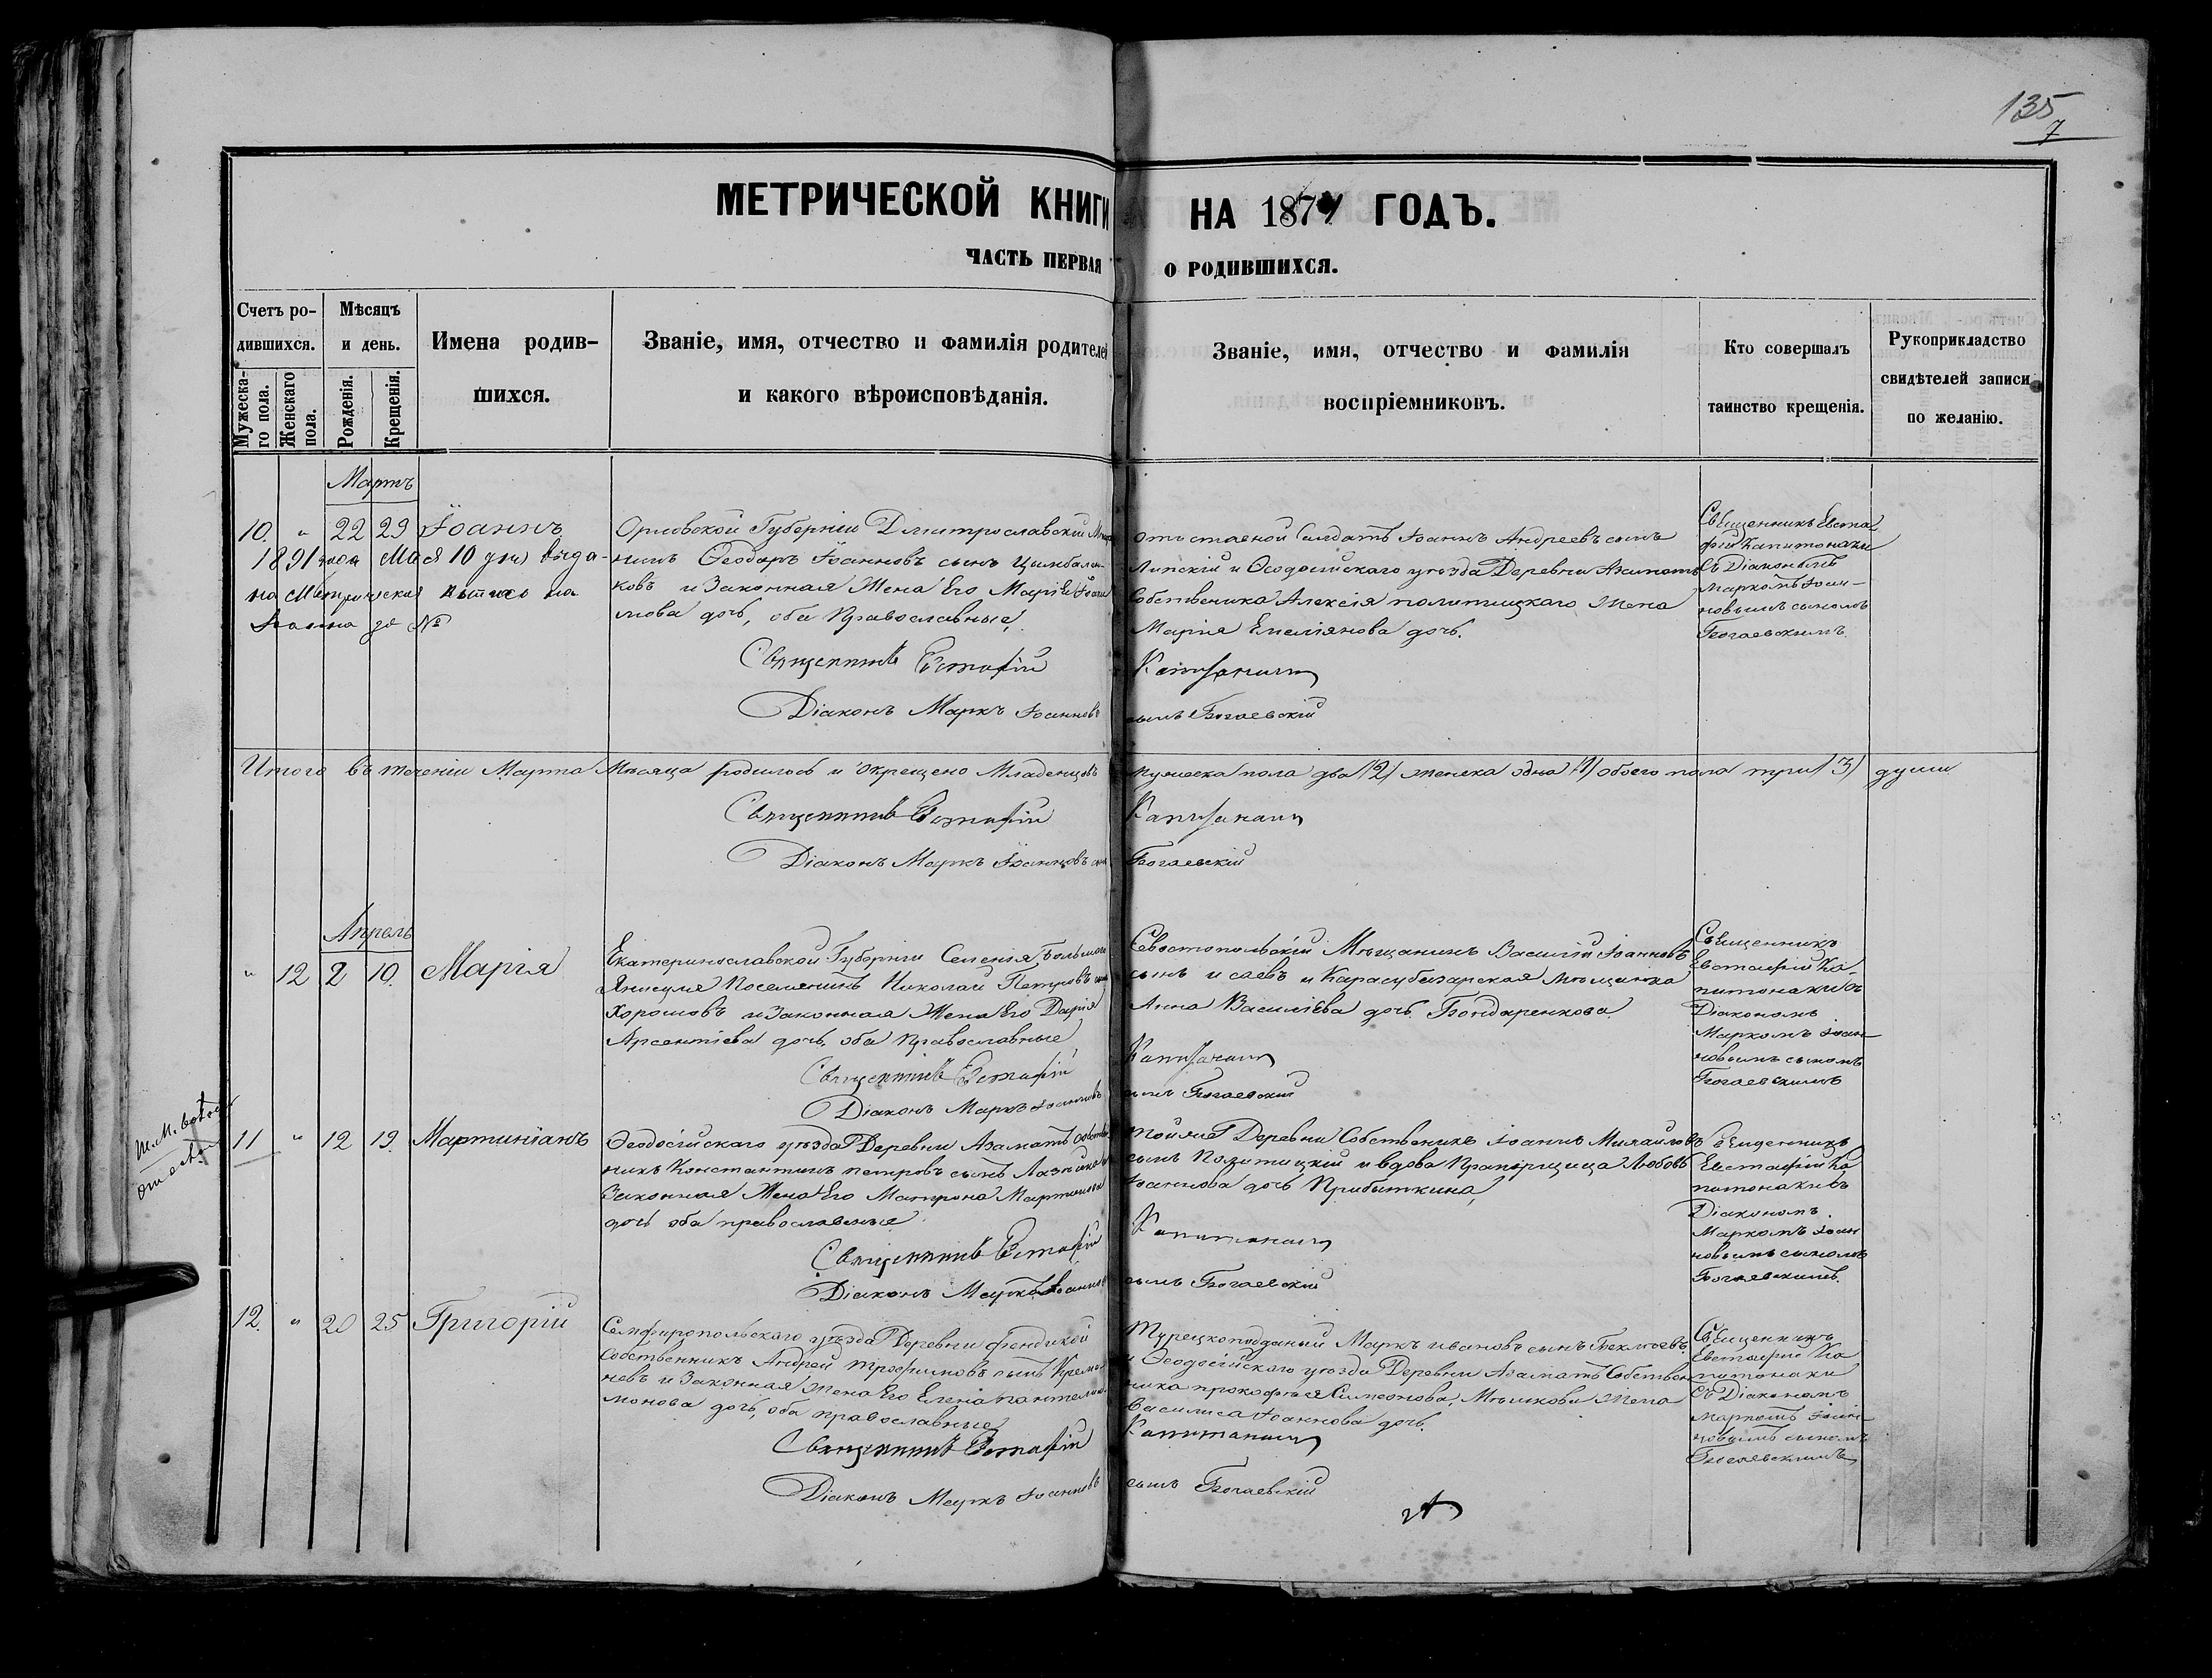 135
7
МЕТРИЧЕСКОЙ КНИГИ НА 1871 ГОДЪ.
ЧАСТЬ ПЕРВАЯ О РОДИВШИХСЯ.
Счетъ ро-
дившихся.
Мужеска-
го пола.
Женскаго
пола.
Мѣсяцъ
и день.
Рожденія.
Крещенія.
Имена родив-
шихся.
Званіе, имя, отчество и фамилія родителей
и какого вѣроисповѣданія.
Званіе, имя, отчество и фамилія
воспріемниковъ.
Кто совершалъ
таинство крещенія.
Рукоприкладство
свидѣтелей записи
по желанію.
Мартъ
10. " 22 29 Іоаннъ
1891 года Мая 10 дня выда-
на Метрическая выпись на
Іоанна за №
Орловской Губерніи Дмитрославскій
нинъ Ѳеодоръ Іоанновъ сынъ Цымбали-
ковъ и Законная Жена Его Марія
мова дочь, оба Православные,
Священникъ Евстафій
Діаконъ Маркъ Іоанновъ
отъставной Солдатъ Іоаннъ Андреевъ сынъ
Липскій и Ѳеодосійскаго уѣзда Деревни Азаматъ
Собственика Алексія политицкаго Жена
Марія Емеліянова дочь.
Капитанаки
сынъ Богаевскій
Священникъ Евста-
фій Капитонаки
съ Діакономъ
Маркомъ Іоан-
новымъ сыномъ
Богаевскимъ.
Итого въ теченіи Марта Мѣсяца родилось и окрещено Младенцовъ мужеска пола два /2/ женска одна /1/ обоего пола три /3/ души
Священникъ Евстафій Капитанаки
Діаконъ Маркъ Іоанновъ сынъ Богаевскій
Апрель
" 12 2 10. Марія
Екатеринославской Губерніи Селенія Большаго
Янисуля Поселянинъ Николай Петровъ сынъ
Хорошовъ и Законная Жена Его Дарія
Арсентіева дочь, оба Православные
Священникъ Евстафій
Діаконъ Маркъ Іоанновъ
Севостопольскій Мѣщанинъ Василій Іоанновъ
сынъ Исаевъ и Карасубазарская мѣщанка
Анна Василіева дочь Бондаренкова
Капитанаки
сынъ Богаевскій
Священникъ
Евстафій Ка-
питонаки съ
Діакономъ
Маркомъ Іоан-
новымъ сыномъ
Богаевскимъ
11 " 12 19. Мартиніанъ
Ѳеодосійскаго уѣзда Деревни Азаматъ Собстве-
никъ Константинъ петровъ сынъ
Законная Жена Его Матрона Мартинова
дочь оба православные
Священникъ Евстафій
Діаконъ Маркъ Іоанновъ
тойже Деревни Собственикъ Іоаннъ Михайловъ
сынъ Политицкій и вдова Прапорщица Любовь
Іоаннова дочь Прибыткина,
Капитанаки
сынъ Богаевскій
Священникъ
Евстафій Ка
питонаки съ
Діакономъ.
Маркомъ Іоан
новымъ сыномъ
Богаевскимъ.
12. " 20 25 Григорій
Симферопольскаго уѣзда Деревни фендикой
Собственникъ Андрей трофимовъ сынъ
невъ и Законная жена Его Елена пантели-
монова дочь, оба православные
Священникъ Евстафій
Діаконъ Маркъ Іоанновъ
Турецкоподданый Маркъ ивановъ сынъ
и Ѳеодосійскаго уѣзда Деревни Азаматъ Собствен
ника прокофія Симеонова, Мѣшкова Жена
Василиса Іоаннова дочь.
Капитанаки
сынъ Богаевскій
Священникъ
Евстафій Ка
питонаки
Съ Діакономъ
Маркомъ Іоан-
новымъ сыномъ
Богаевскимъ